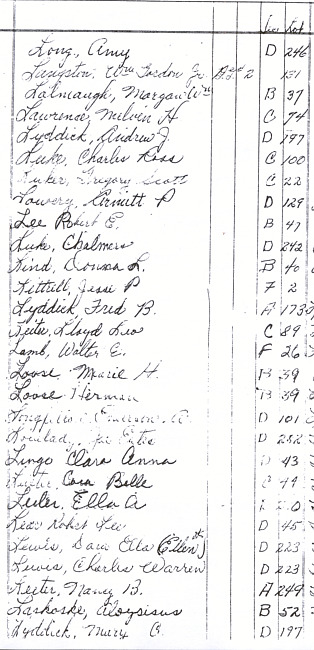 Lot
Long, Amy D 246
Langston, Wm Gordon Jr. 2 131
Lalmaugh, Morgan Wm B 37
Lawrence, Melvin H C 74
Lyddick, Andrew J. D 197
Luke, Charles Ross C 100
Gregory Scott C 22
Lowery, Arnutt P D 129
Lee Robert E. B 47
Luke, Chalmers D 242
Lind, Donna L. B 40
Littrell, Jesse P F 2
Lyddick, Fred B. A 173
Leiter, Lloyd Leo C 89
Lamb, Walter E. F 26
Loose Marie H. B 39
Loose Herman B 39
Emerson D 101
D 252
Lingo Clara Anna D 43
Cora Belle C 49
Luiler, Ella A
Lear Robert Lee D 45
Lewis, Sara Etta (Ellen) D 223
Lewis, Charles Warren D 223
Leeter, Nancy B. A 249
Laskoske, Aloysisus B 52
Lyddick, Mary C. D 197